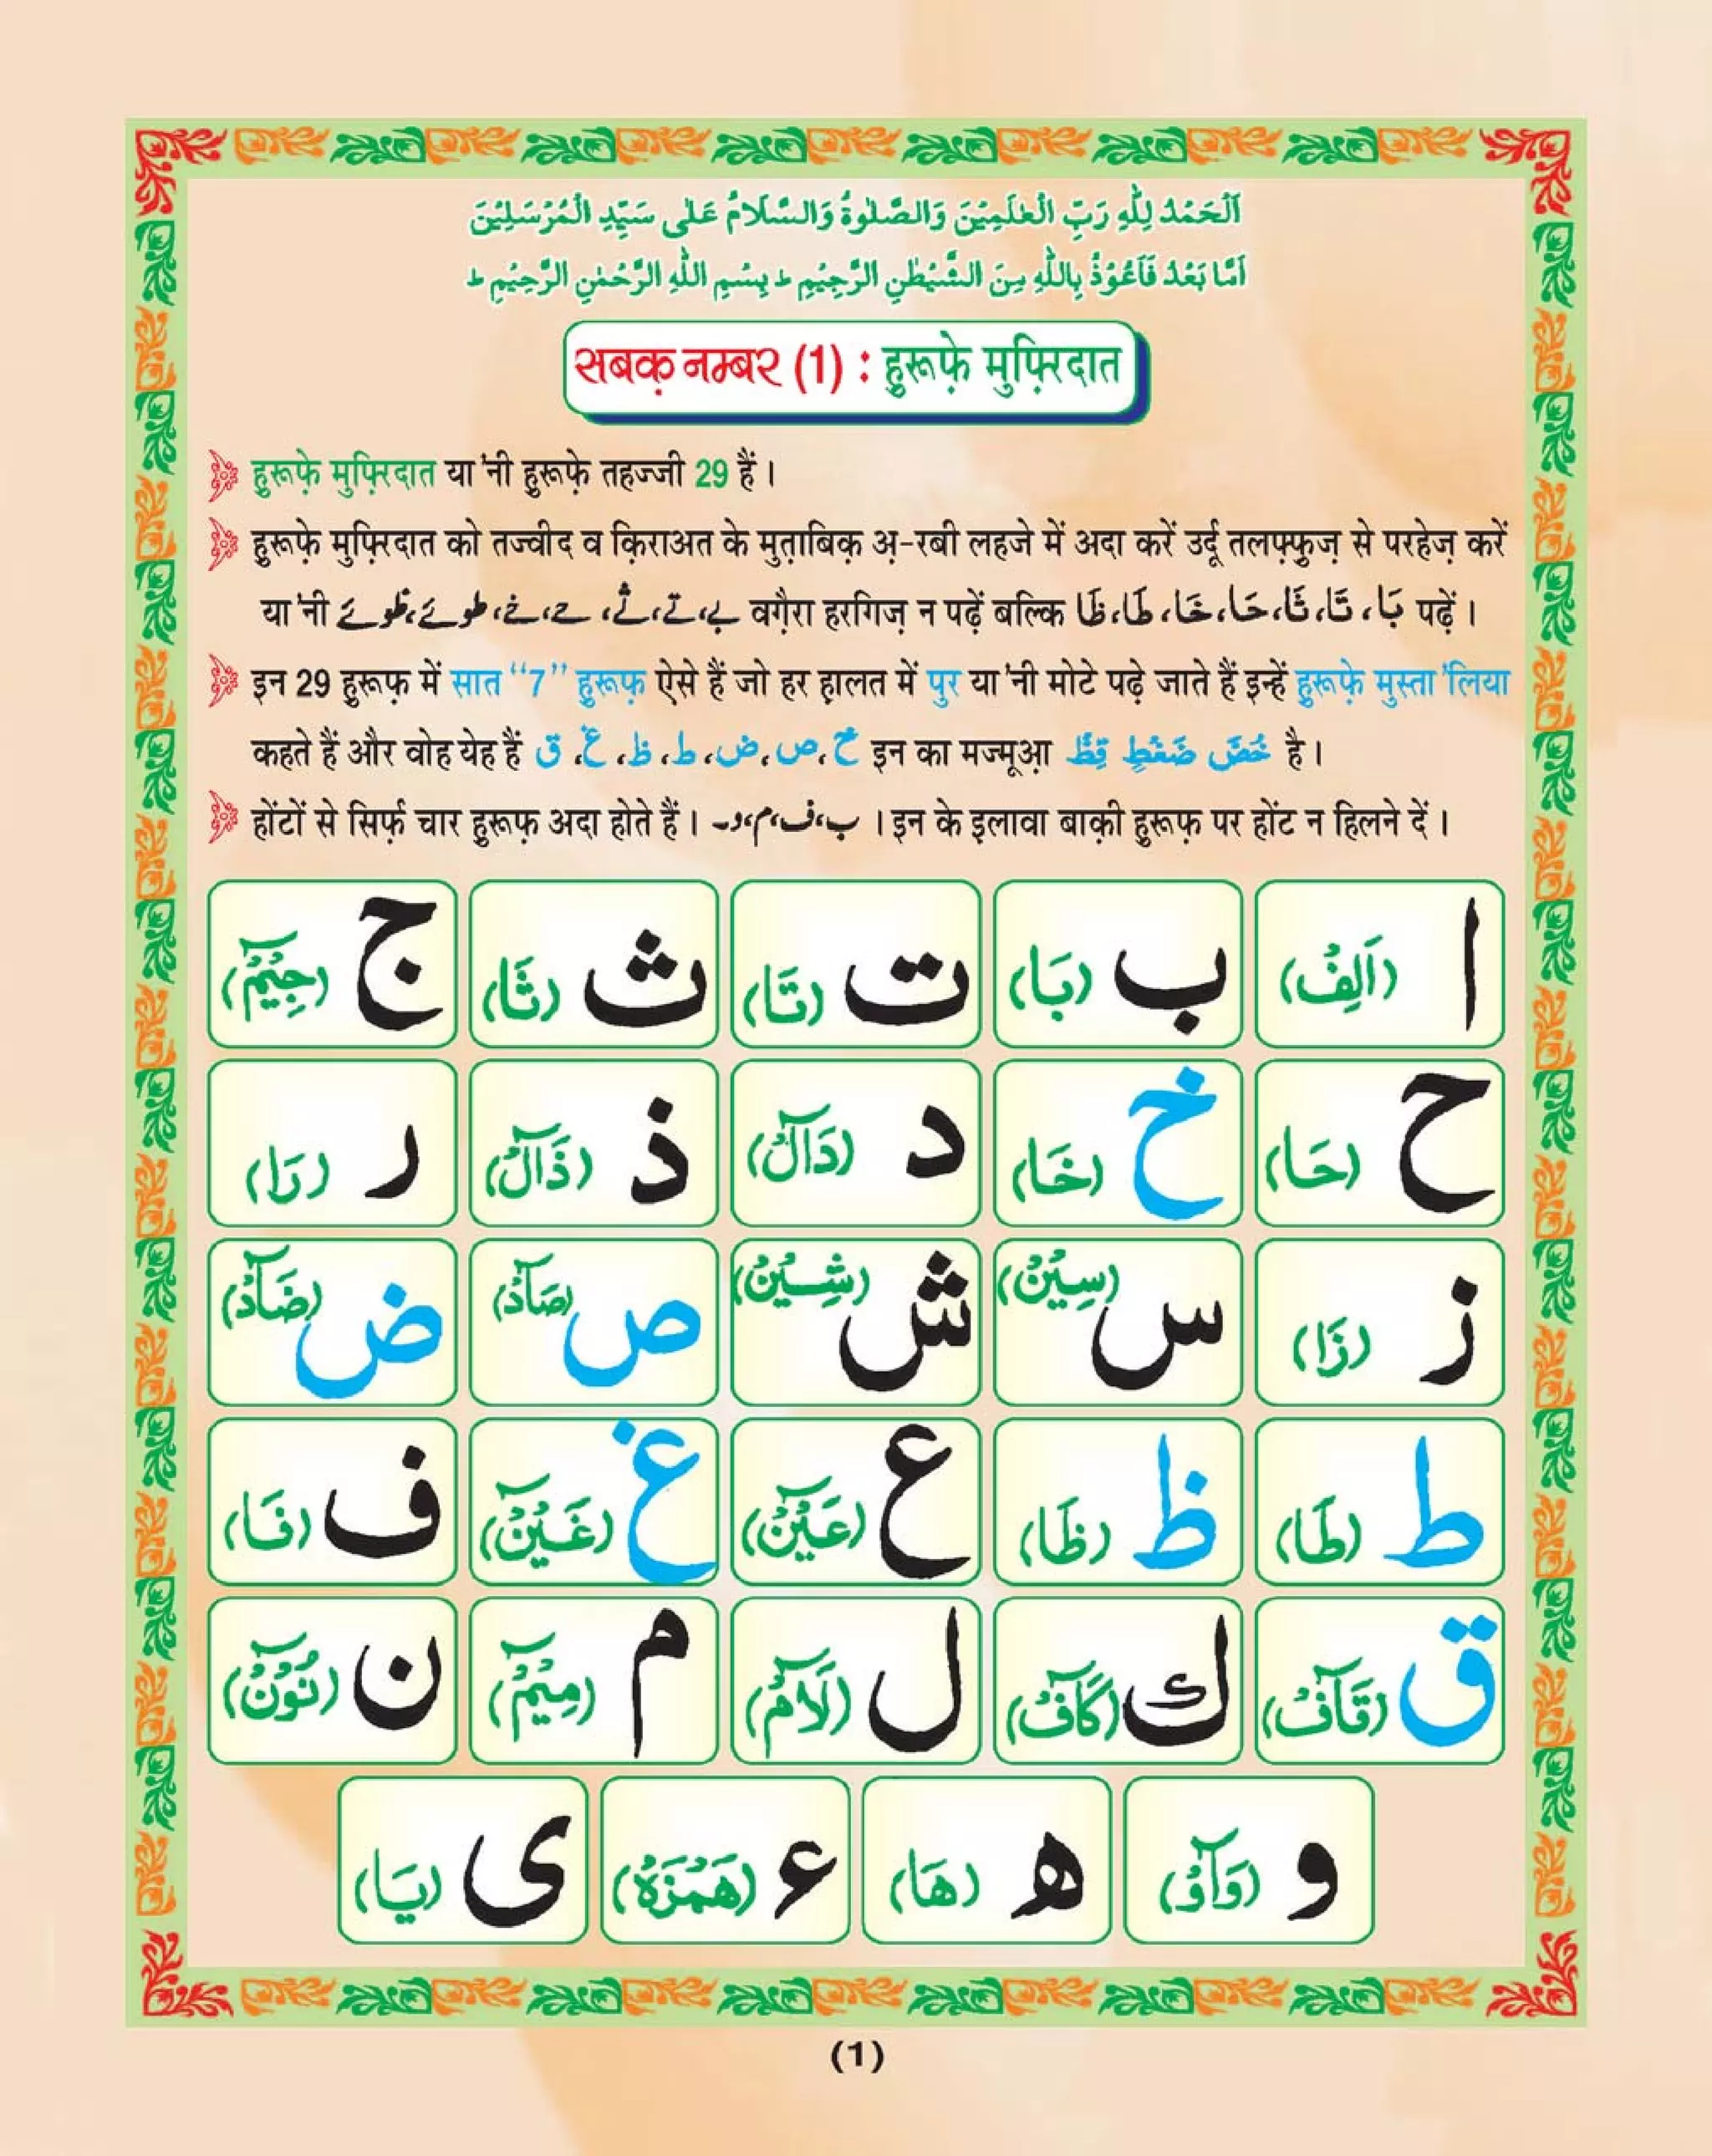 اَلْحَمْدُ لِلّٰهِ رَبِّ الْعٰلَمِيْنَ وَالصَّلٰوةُ وَالسَّلَامُ عَلٰى سَيِّدِ الْمُرْسَلِيْنَ
اَمَّا بَعْدُ فَاَعُوْذُ بِاللّٰهِ مِنَ الشَّيْطٰنِ الرَّجِيْمِ ط بِسْمِ اللّٰهِ الرَّحْمٰنِ الرَّحِيْمِ ط
सबक़ नम्बर (1) : हुरूफ़े मुफ़्रिदात
हुरूफ़े मुफ़्रिदात या'नी हुरूफ़े तहज्जी 29 हैं ।
हुरूफ़े मुफ़्रिदात को तज्वीद व क़िराअत के मुत़ाबिक़ अ़-रबी लहजे में अदा करें उर्दू तलफ़्फ़ुज़ से परहेज़ करें
या'नी بے،تے،ثے، حے،خے، طوئے،ظوئے वग़ैरा हरगिज़ न पढ़ें बल्कि بَا، تَا،ثَا،حَا،خَا، طَا،ظَا पढ़ें ।
इन 29 हुरूफ़ में सात “7” हुरूफ़ ऐसे हैं जो हर ह़ालत में पुर या'नी मोटे पढ़े जाते हैं इन्हें हुरूफ़े मुस्ता'लिया
कहते हैं और वोह येह हैं خ،ص،ض،ط،ظ،غ،ق इन का मज्मूआ़ خُصَّ ضَغْطٍ قِظْ है ।
होंटों से सिर्फ़ चार हुरूफ़ अदा होते हैं । ب،ف،م،و۔ । इन के इ़लावा बाक़ी हुरूफ़ पर होंट न हिलने दें ।
ا (اَلِفْ) ب (بَا) ت (تَا) ث (ثَا) ج (جِيْمْ)
ح (حَا) خ (خَا) د (دَالْ) ذ (ذَالْ) ر (رَا)
ز (زَا) س (سِيْنْ) ش (شِيْنْ) ص (صَادْ) ض (ضَادْ)
ط (طَا) ظ (ظَا) ع (عَيْنْ) غ (غَيْنْ) ف (فَا)
ق (قَافْ) ك (كَافْ) ل (لَامْ) م (مِيْمْ) ن (نُوْنْ)
و (وَاوْ) ه (هَا) ء (هَمْزَهْ) ى (يَا)
(1)